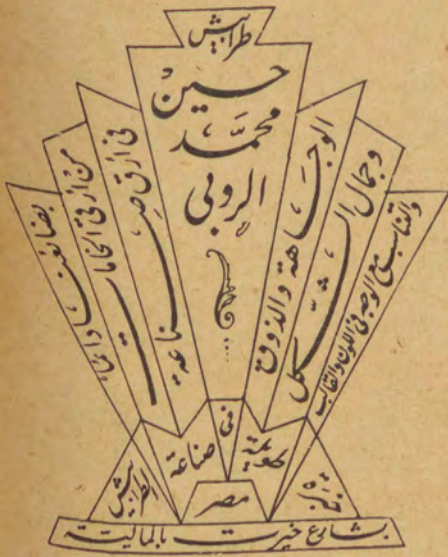 طرابيش
حسين
محمد
الروبي
الوجاهة والذوق
وجمال الشكل
والتناسب مع الوجه في اللون والقالب
في أرقى صناعة
من أرقى الخامات
خبرة
طويلة
في
صناعة
الطرابيش
مصر
بشارع خيرت بالمالية